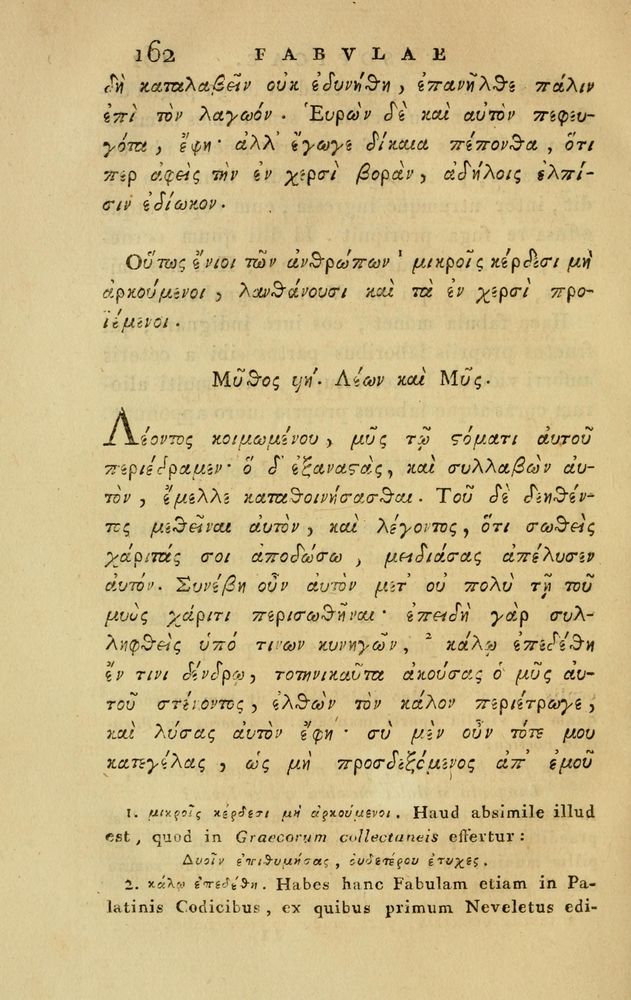 162 FABVLAE
δὴ καταλαβεῖν οὐκ ἐδυνήθη, ἐπανῆλθε πάλιν
ἐπὶ τὸν λαγωόν. Ἑυρὼν δὲ καὶ αὐτὸν πεφευ-
γότα, ἔφη· ἀλλ' ἔγωγε δίκαια πέπονθα, ὅτι
περ ἀφεὶς τὴν ἐν χερσὶ βορὰν, ἀδήλοις ἐλπί-
σιν ἐδίωκον.
Οὕτως ἔνιοι τῶν ἀνθρώπων ¹ μικροῖς κέρδεσι μὴ
ἀρκούμενοι, λανθάνουσι καὶ τὰ ἐν χερσὶ προ-
ϊέμενοι.
Μῦθος ιμή. Λέων καὶ Μῦς.
Λέοντος κοιμωμένου, μῦς τῷ στόματι ἀυτοῦ
περιέδραμεν· ὁ δ' ἐξαναστὰς, καὶ συλλαβὼν ἀυ-
τὸν, ἔμελλε καταθοινήσασθαι. Τοῦ δὲ δεηθέν-
τος μεθεῖναι αὐτὸν, καὶ λέγοντος, ὅτι σωθεὶς
χάριτάς σοι ἀποδώσω, μειδιάσας ἀπέλυσεν
ἀυτόν. Συνέβη οὖν ἀυτὸν μετ' οὐ πολὺ τῇ τοῦ
μυὸς χάριτι περισωθῆναι· ἐπειδὴ γὰρ συλ-
ληφθεὶς ὑπό τινων κυνηγῶν, ² κάλῳ ἐπεδέθη
ἔν τινι δένδρῳ, τοτηνικαῦτα ἀκούσας ὁ μῦς ἀυ-
τοῦ στένοντος, ἐλθὼν τὸν κάλον περιέτρωγε,
καὶ λύσας ἀυτὸν ἔφη· σὺ μὲν οὖν τότε μου
κατεγέλας, ὡς μὴ προσδεξόμενος ἀπ' ἐμοῦ
1. μικροῖς κέρδεσι μὴ ἀρκούμενοι. Haud absimile illud
est, quod in Graecorum collectaneis effertur:
Δυοῖν ἐπιθυμήσας, ὀυδετέρου ἔτυχες.
2. κάλῳ ἐπεδέθη. Habes hanc Fabulam etiam in Pa-
latinis Codicibus, ex quibus primum Neveletus edi-